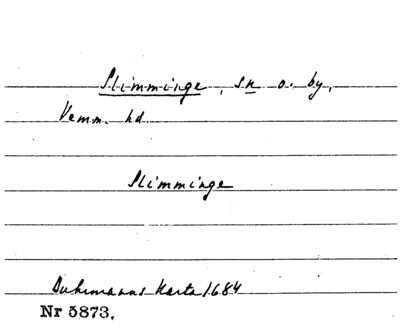 Slimminge, sn o. by,
Vemm. hd.
Slimminge
Buhrmanns Karta 1684
Nr 5873,